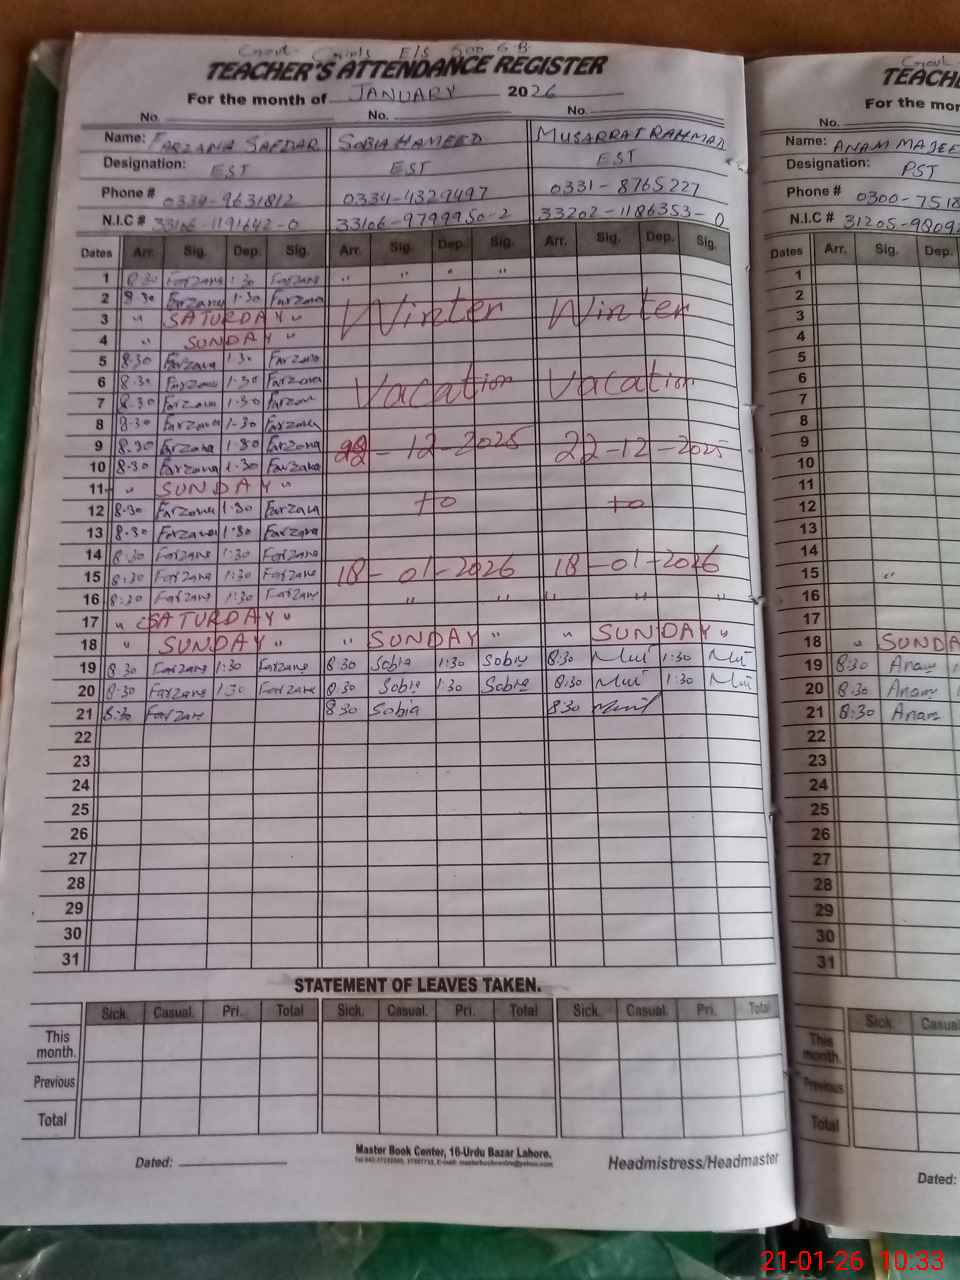 Govt. Girls E/S 500 G.B
TEACHER'S ATTENDANCE REGISTER
For the month of JANUARY 2026
No. No. No.
Name: FARZANA SAFDAR SOBIA HAMEED MUSARRAT RAHMAN
Designation: EST EST EST
Phone # 0334-9631812 0334-4329497 0331-8765227
N.I.C # 33106-1191642-0 33106-9799950-2 33202-1186353-0
Dates Arr. Sig. Dep. Sig. Arr. Sig. Dep. Sig. Arr. Sig. Dep. Sig.
1 8:30 Farzana 1:30 Farzana " " " "
2 8:30 Farzana 1:30 Farzana Winter Winter
3 " SATURDAY "
4 " SUNDAY "
5 8:30 Farzana 1:30 Farzana
6 8:30 Farzana 1:30 Farzana Vacation Vacation
7 8:30 Farzana 1:30 Farzana
8 8:30 Farzana 1:30 Farzana
9 8:30 Farzana 1:30 Farzana 22-12-2025 22-12-2025
10 8:30 Farzana 1:30 Farzana
11 " SUNDAY "
12 8:30 Farzana 1:30 Farzana to to
13 8:30 Farzana 1:30 Farzana
14 8:30 Farzana 1:30 Farzana
15 8:30 Farzana 1:30 Farzana 18-01-2026 18-01-2026
16 8:30 Farzana 1:30 Farzana " " " " "
17 " SATURDAY "
18 " SUNDAY " " SUNDAY " " SUNDAY "
19 8:30 Farzana 1:30 Farzana 8:30 Sobia 1:30 Sobia 8:30 1:30
20 8:30 Farzana 1:30 Farzana 8:30 Sobia 1:30 Sobia 8:30 1:30
21 8:30 Farzana 8:30 Sobia 8:30
22
23
24
25
26
27
28
29
30
31
STATEMENT OF LEAVES TAKEN.
Sick. Casual. Pri. Total Sick. Casual. Pri. Total Sick. Casual. Pri. Total
This month.
Previous
Total
Dated:
Master Book Center, 16-Urdu Bazar Lahore.
Headmistress/Headmaster
Govt
TEACHE
For the mon
No.
Name: ANAM MAJEE
Designation: PST
Phone # 0300-7518
N.I.C # 31205-9809
Dates Arr. Sig. Dep.
1
2
3
4
5
6
7
8
9
10
11
12
13
14
15 "
16
17
18 " SUNDA
19 8:30 Anam 1
20 8:30 Anam
21 8:30 Anam
22
23
24
25
26
27
28
29
30
31
Sick. Casual
This month.
Previous
Total
Dated:
21-01-26 10:33